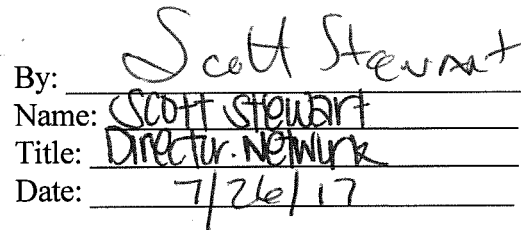 By: Scott Stewart
Name: Scott Stewart
Title: Director. Network
Date: 7/26/17